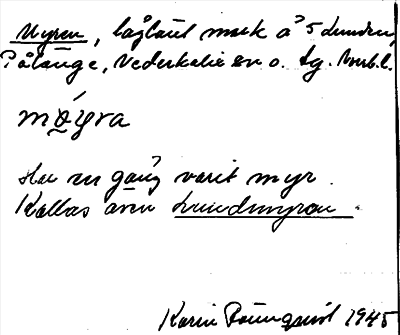 Myren, låglänt mark å 5 Lunden,
Pålänge, Nederkalix sn o. tg. Nrrb. l.
möyra
Har en gång varit myr.
Kallas även Lundmyran.
Karin Rönnqvist 1945